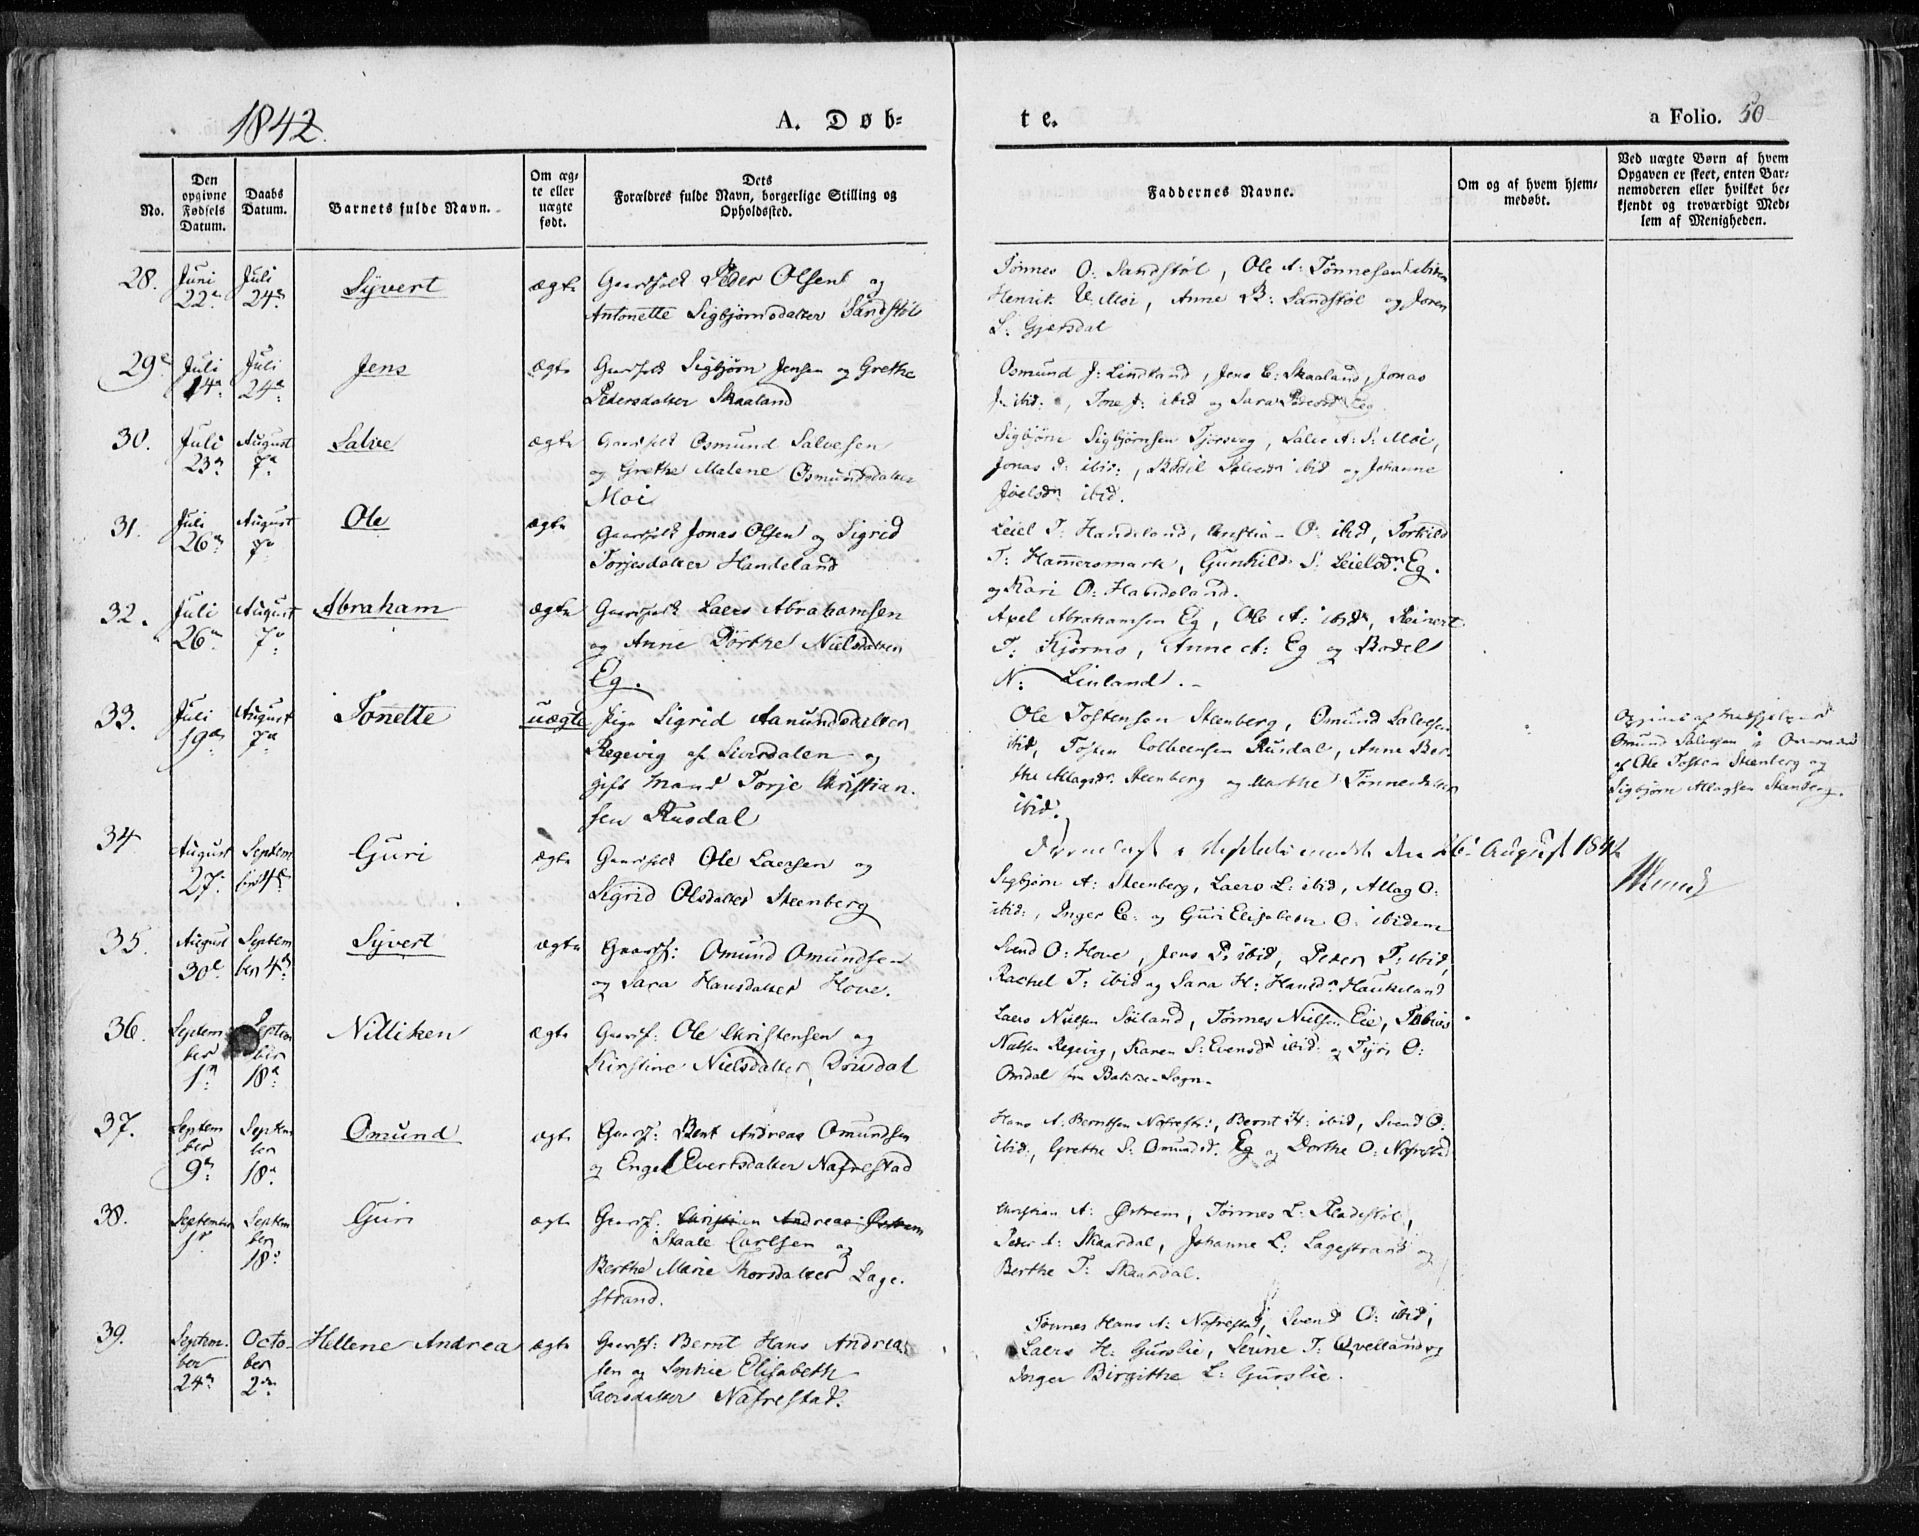 1842.
A. Døb=
te.
a Folio. 50
No.
Den opgivne Fødsels Datum.
Daabs Datum.
Barnets fulde Navn.
Om ægte eller uægte født.
Dets Forældres fulde Navn, borgerlige Stilling og Opholdssted.
Faddernes Navne.
Om og af hvem hjemmedøbt.
Ved uægte Børn af hvem Opgaven er skeet, enten Barnemoderen eller hvilket bekjendt og troværdigt Medlem af Menigheden.
28. Juni 22 Juli 24 Syvert ægte
Peder Olsen og
Antonette Sigbjørnsdatter Sandstøl
O: Sandstøl, Ole A: Tønnesen ibidem
Henrik Moi, Anne B: Sandstøl og Joren
Gjersdal
29 Juli 14 Juli 24 Jens ægte
Sigbjørn Jensen og Grethe
Pedersdatter Skaaland
Osmund J: Lindland, Jens Skaaland, Jonas
ibid:, Tone J: ibid og Sara Eg.
30. Juli 23 August 7 Salve ægte
Osmund Salvesen
og Grethe Malene Osmundsdatter
Moi
Sigbjørn Sigbjørnsen, Salve A: S: Moi,
Jonas ibid:, Bodil ibid og Johanne
Joelsd ibid.
31. Juli 26 August 7 Ole ægte
Jonas Olsen og Sigrid
Torjesdatter Handeland
Leiel T: Handeland, O: ibid, Torkild
T: Hamersmark, Gunhild S: Leielsd Eg.
og Kari O: Handeland.
32. Juli 26 August 7 Abraham ægte
Laers Abrahamsen
og Anne Dorthe Nielsdatter
Eg.
Axel Abrahamsen Eg, Ole A: ibid, Reinert
T: Kjørmo, Anne A: Eg og Bodel
N: Linland.
33. Juli 19 August 7 Tonette uægte
Pige Sigrid Aanundsdatter
Regevig af og
gift Mand Torje Christian-
sen Rusdal
Ole Tostensen Steenberg, Omund Salvesen
ibid, Tosten Rusdal, Anne Ber-
the Allagsd Steenberg og Marthe Tønnesdatter
ibid.
af
Omund Salvesen
af Ole Tosten Steenberg og
Sigbjørn Allagsen Steenberg.
34 August 27 September 4 Guri ægte
den 26 August 1842
Ole Laersen og
Sigrid Olsdatter Steenberg
Sigbjørn A: Steenberg, Laers L: ibid, Allag O:
ibid:, Inger og Guri Elisabeth O: ibidem
35. August 30 September 4 Syvert ægte
Gaardf: Omund Omundsen
og Sara Hansdatter Hove.
Svend O: Hove, Jens P: ibid, Peder T: ibid,
Rachel T: ibid og Sara H: Haukeland
36. September 1 September 18 Nilliken ægte
Gaardf: Ole Christensen og
Kirstine Nielsdatter,
Laers Nielsen Søiland, Tønnes Nielsen Eie, Tobias
Nielsen Regevig, Karen S: ibid: og O:
Omdal fra Bakke-Sogn.
37. September 9 September 18 Omund ægte
Gaardf: Bent Andreas Omundsen
og Engel Evertsdatter Nafrestad
Hans A: Berntsen Nafrest:, Bernt H: ibid, Svend O:
ibid:, Grethe S: Omundsd. Eg og Dorthe O: Nafrestad
38. September 1 September 18 Guri ægte
Gaardf: Christian Andreas Østrem
Staale Carlsen og
Berthe Marie Thorsdatter Lage-
strand.
Christian A: Østrem, Tønnes L: Fladestøl,
Peder A: Skaardal, Johanne L: Lagestrand og
Berthe T: Skaardal.
39. September 24 October 2 Hellene Andrea ægte
Gaardf: Bernt Hans Andrea-
sen og Sophie Elisabeth
Laersdatter Nafrestad.
Tønnes Hans A: Nafrestad, Svend O: ibid,
Laers H: Gurslie, Serine T: Qvelland og
Inger Birgithe L: Gurslie.